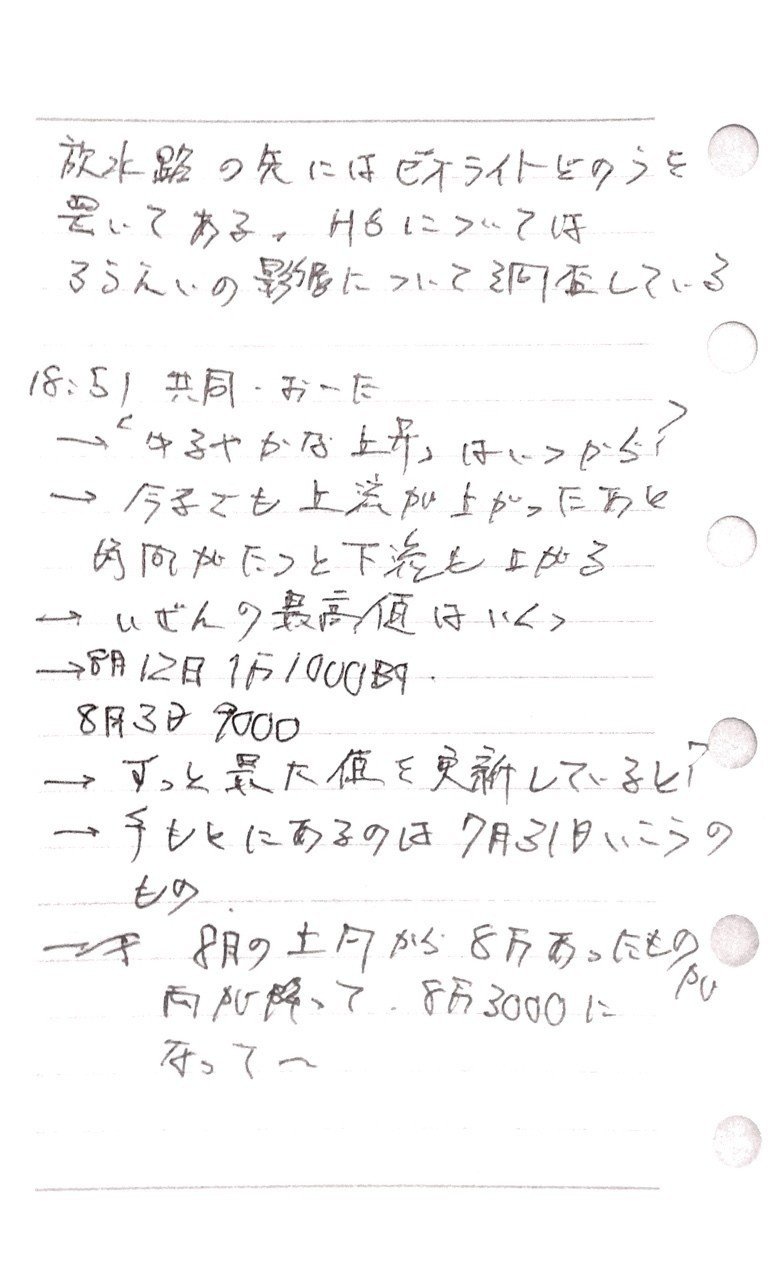 放水路の先にはゼオライトどのうを
置いてある。H6については
ろうえいの影響について調査している
18:51 共同・おーた
→「ゆるやかな上昇」はいつから?
→ 今までも上流が上がったあと
時間がたつと下流も上がる
→ いぜんの最高値はいくつ
→8月12日 1万1000Bq.
8月3日 9000
→ ずっと最大値を更新していると?
→ 手もとにあるのは 7月31日いこうの
もの.
8月の上旬から 8万あったもの
が
雨が降って. 8万3000に
なって〜